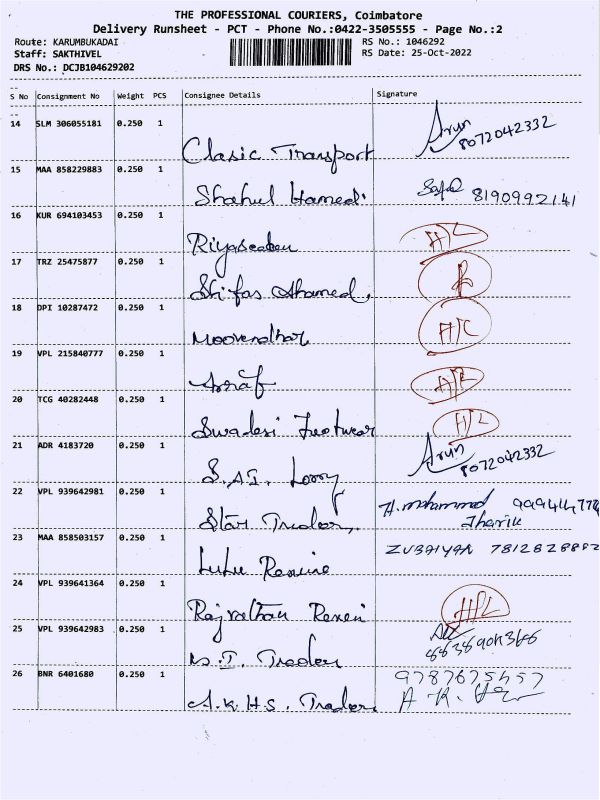 THE PROFESSIONAL COURIERS, Coimbatore
Delivery Runsheet - PCT - Phone No.:0422-3505555 - Page No.:2
Route: KARUMBUKADAI RS No.: 1046292
Staff: SAKTHIVEL RS Date: 25-Oct-2022
DRS No.: DCJB104629202
S No Consignment No Weight PCS Consignee Details Signature
14 SLM 306055181 0.250 1 Clasic Transport Arun 8072042332
15 MAA 858229883 0.250 1 Shahul Hamed 8190992141
16 KUR 694103453 0.250 1
17 TRZ 25475877 0.250 1 Shifas Ahamed,
18 DPI 10287472 0.250 1 Moovendhar
19 VPL 215840777 0.250 1
20 TCG 40282448 0.250 1 Swadesi Footwear
21 ADR 4183720 0.250 1 Lorry Arun 8072042332
22 VPL 939642981 0.250 1 Star Trador, H. mohammed
Tharik
23 MAA 858503157 0.250 1 Lulu Rexine
24 VPL 939641364 0.250 1
25 VPL 939642983 0.250 1 Trador
26 BNR 6401680 0.250 1 A.K.H.S. Trador